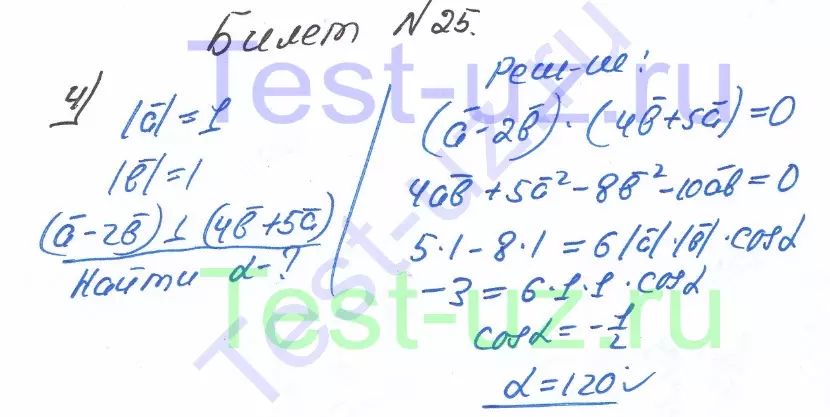 Билет №25.
4)
|a̅|=1
|b̅|=1
(a̅-2b̅)⊥(4b̅+5a̅)
Найти α-?
Реш-ие:
(a̅-2b̅)·(4b̅+5a̅)=0
4a̅b̅+5a̅²-8b̅²-10a̅b̅=0
5·1-8·1=6|a̅|·|b̅|·cosα
-3=6·1·1·cosα
cosα=-1/2
α=120
Test-uz.ru
Test-uz.ru
Test-uz.ru